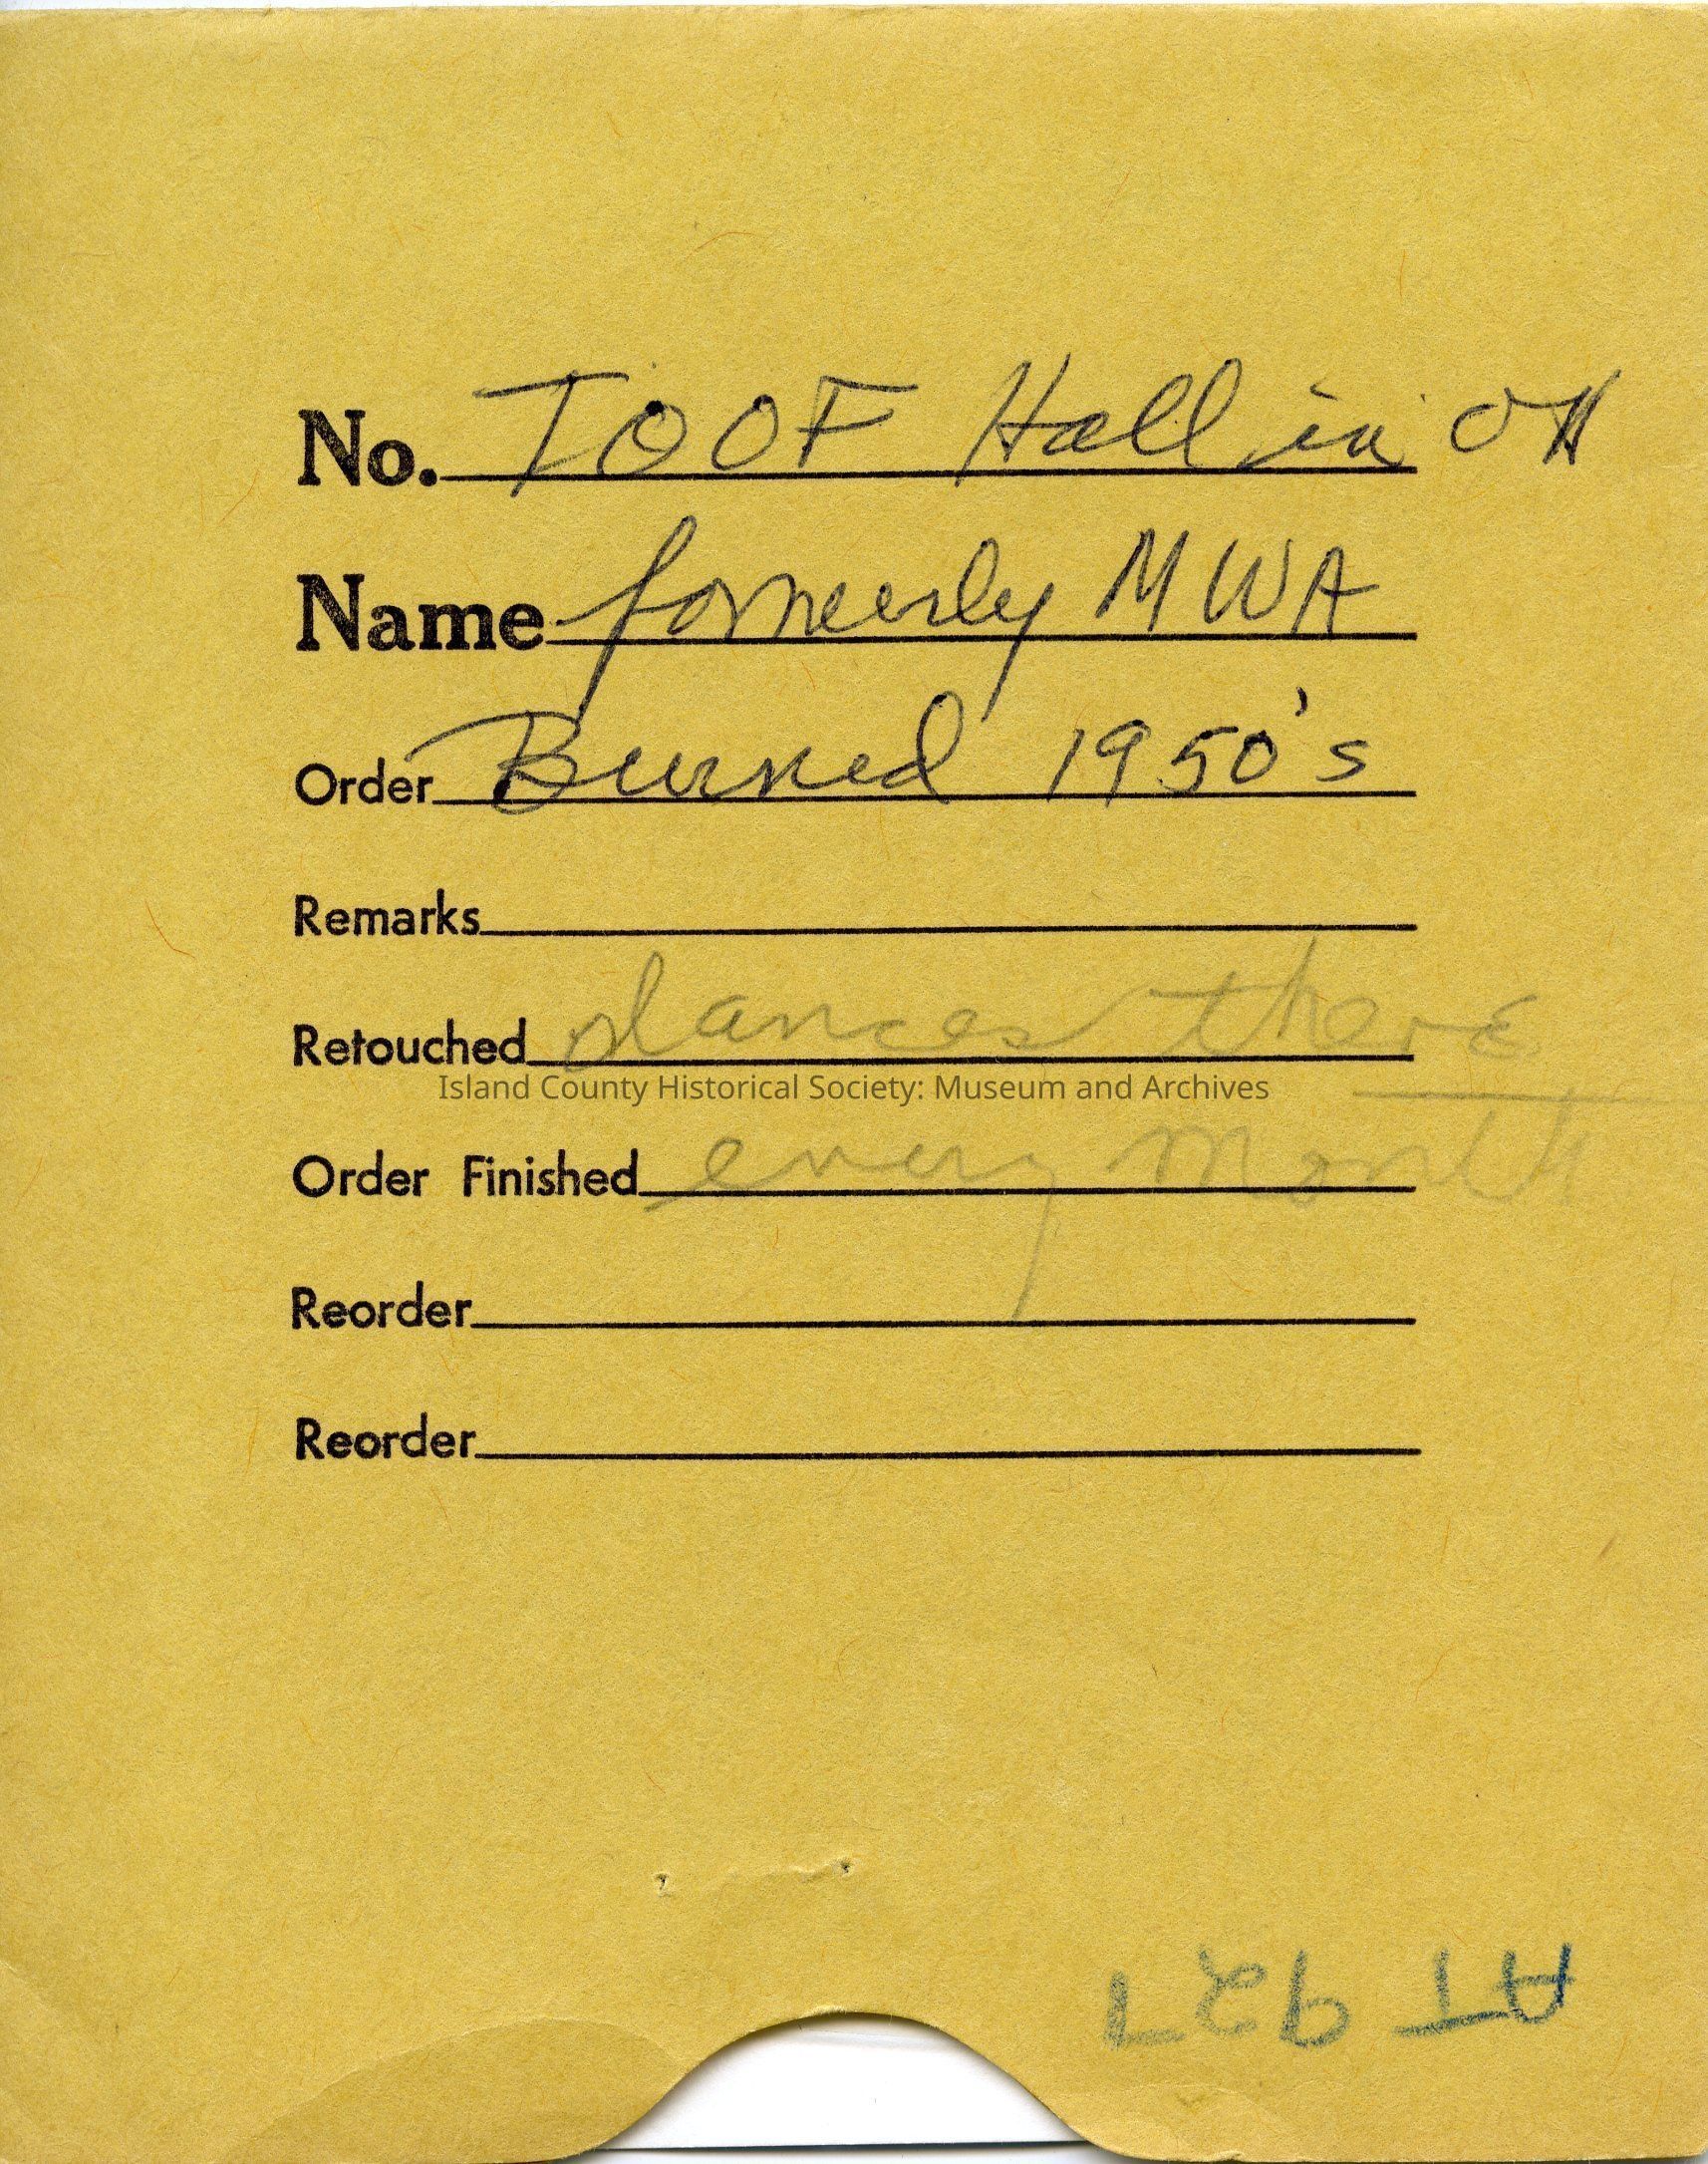 No. IOOF Hall in OH
Name formerly MWA
Order Burned 1950's
Remarks
Retouched dances there
Island County Historical Society: Museum and Archives
Order Finished every month
Reorder
Reorder
AT 927